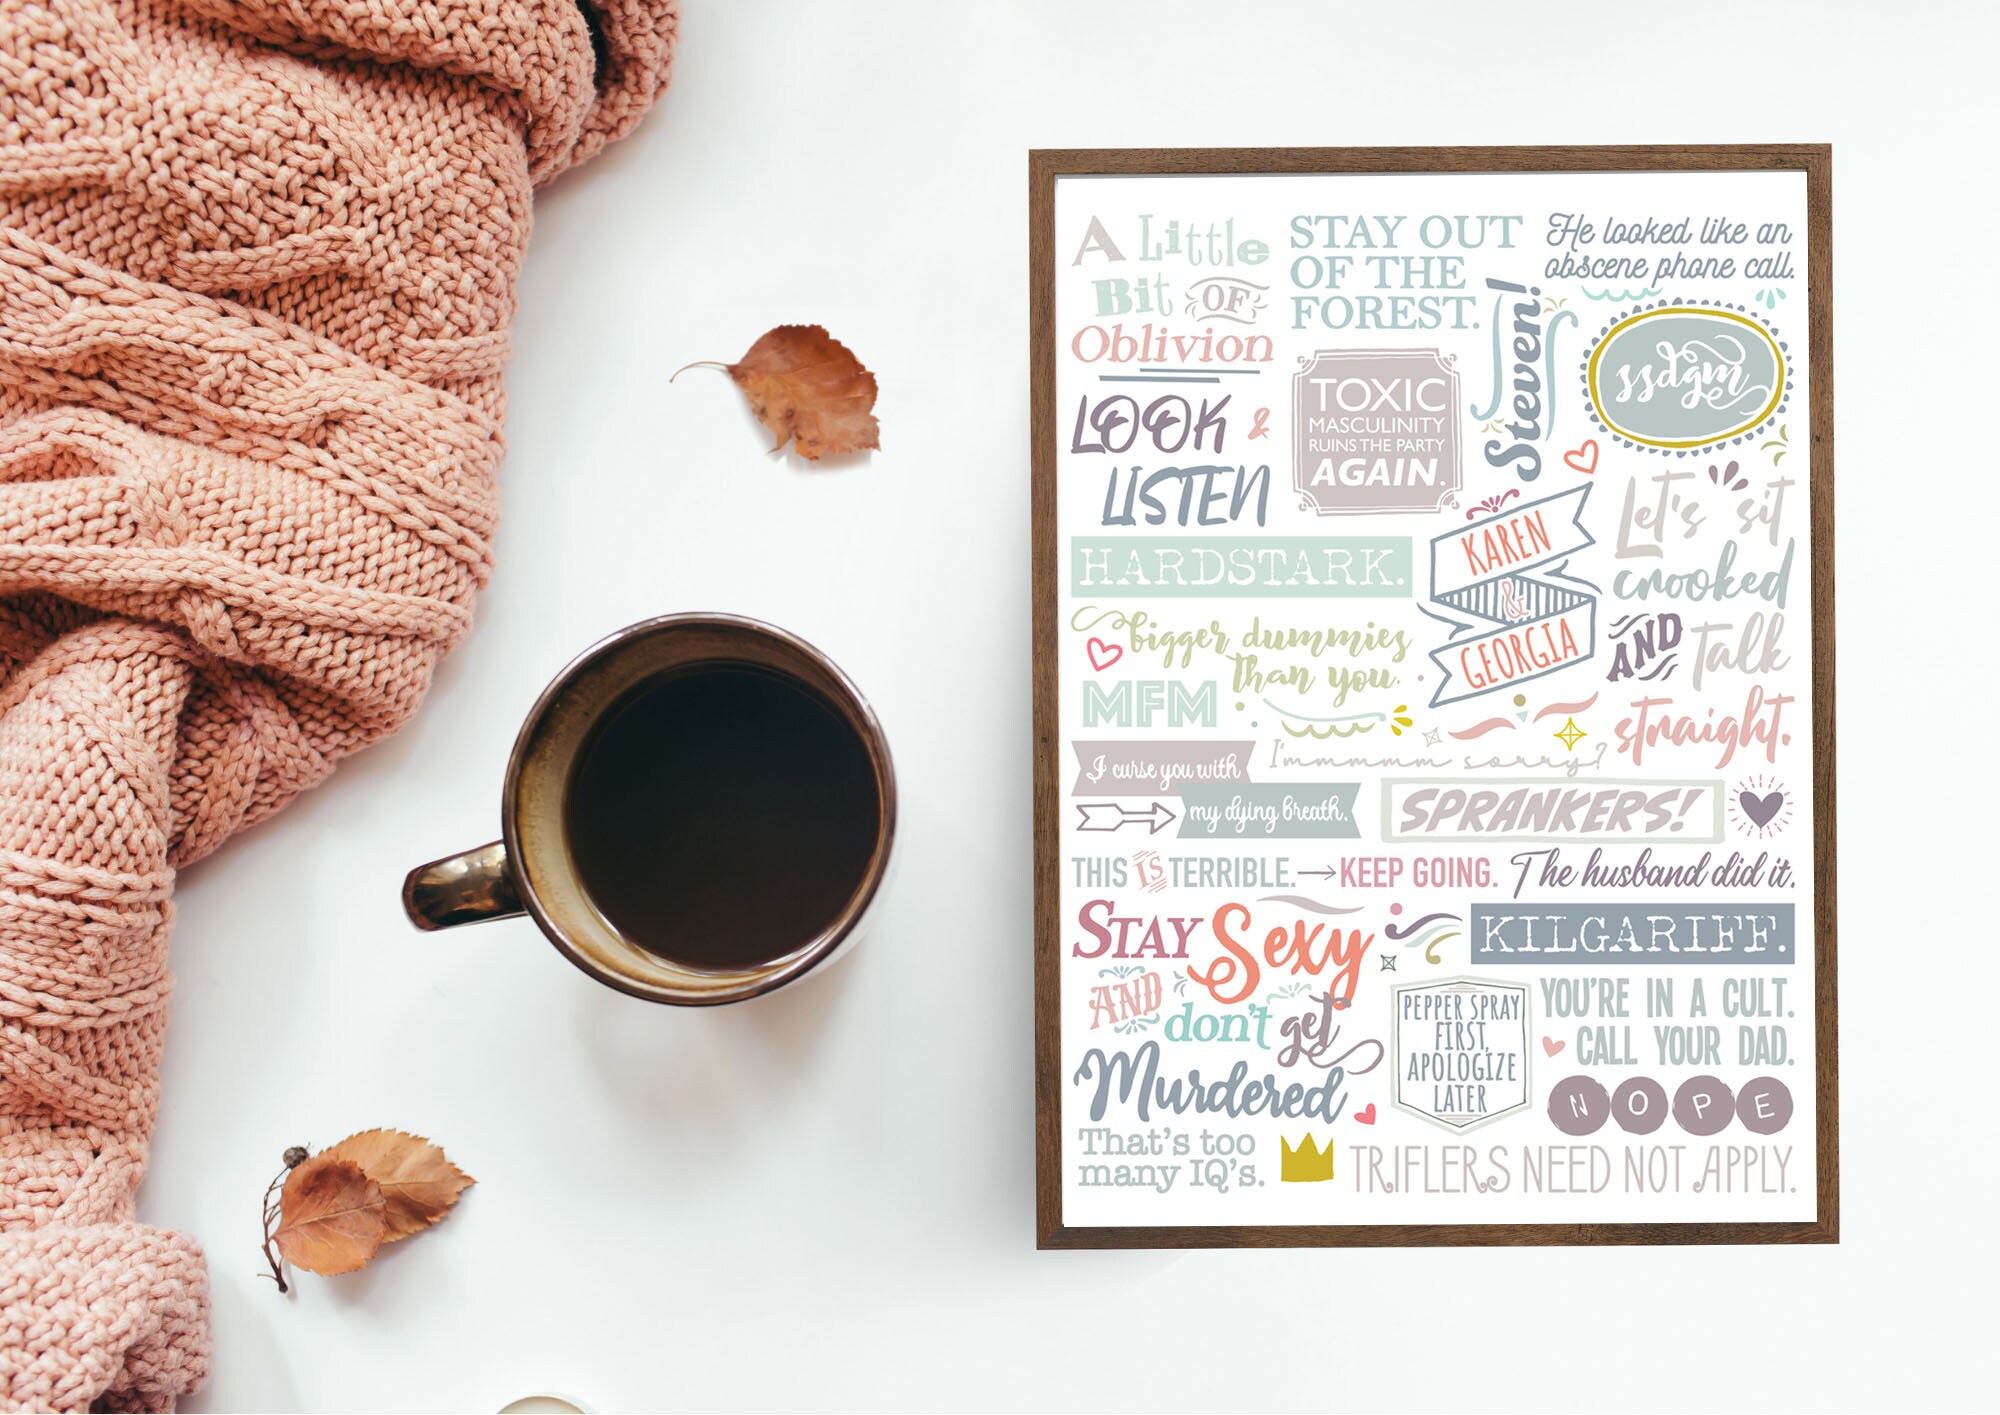 A Little
Bit OF
Oblivion
STAY OUT
OF THE
FOREST.
He looked like an
obscene phone call.
Steven!
ssdgm
LOOK &
LISTEN
TOXIC
MASCULINITY
RUINS THE PARTY
AGAIN.
HARDSTARK.
KAREN
&
GEORGIA
Let's sit
crooked
AND talk
straight.
bigger dummies
than you.
MFM
I curse you with
my dying breath.
I'mmmmm sorry?
SPRANKERS!
THIS IS TERRIBLE. → KEEP GOING.
The husband did it.
STAY Sexy
AND don't get
Murdered
KILGARIFF.
PEPPER SPRAY
FIRST,
APOLOGIZE
LATER
YOU'RE IN A CULT.
CALL YOUR DAD.
NOPE
That's too
many IQ's.
TRIFLERS NEED NOT APPLY.